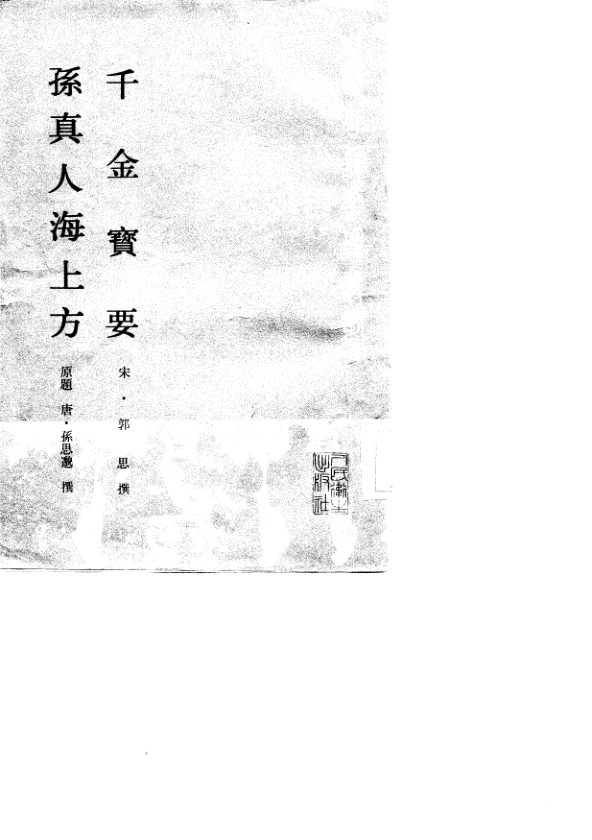 千金寶要
宋·郭思撰
孫真人海上方
原題 唐·孫思邈撰
人民衛生
出版社